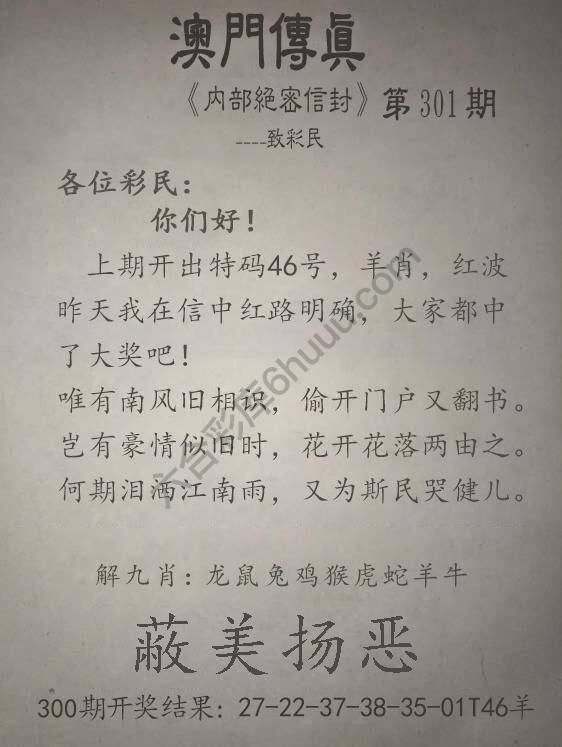 澳門傳真
《内部絕密信封》第301期
----致彩民
各位彩民：
你们好！
上期开出特码46号，羊肖，红波
昨天我在信中红路明确，大家都中
了大奖吧！
唯有南风旧相识，偷开门户又翻书。
岂有豪情似旧时，花开花落两由之。
何期泪洒江南雨，又为斯民哭健儿。
解九肖：龙鼠兔鸡猴虎蛇羊牛
蔽美扬恶
300期开奖结果：27-22-37-38-35-01T46羊
六合彩库6huuu.com